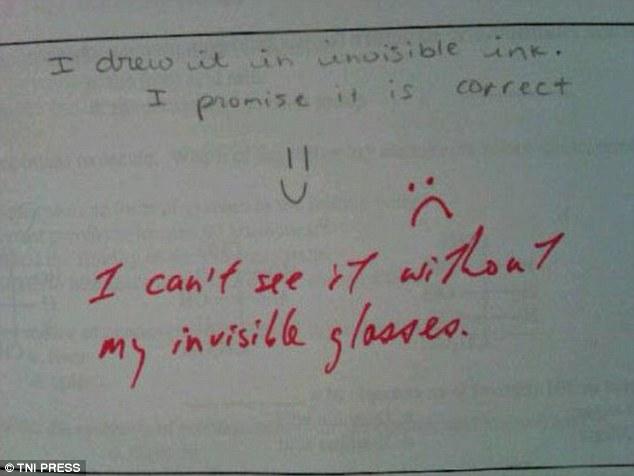 I drew it in invisible ink.
I promise it is correct
I can't see it without
my invisible glasses.
© TNI PRESS